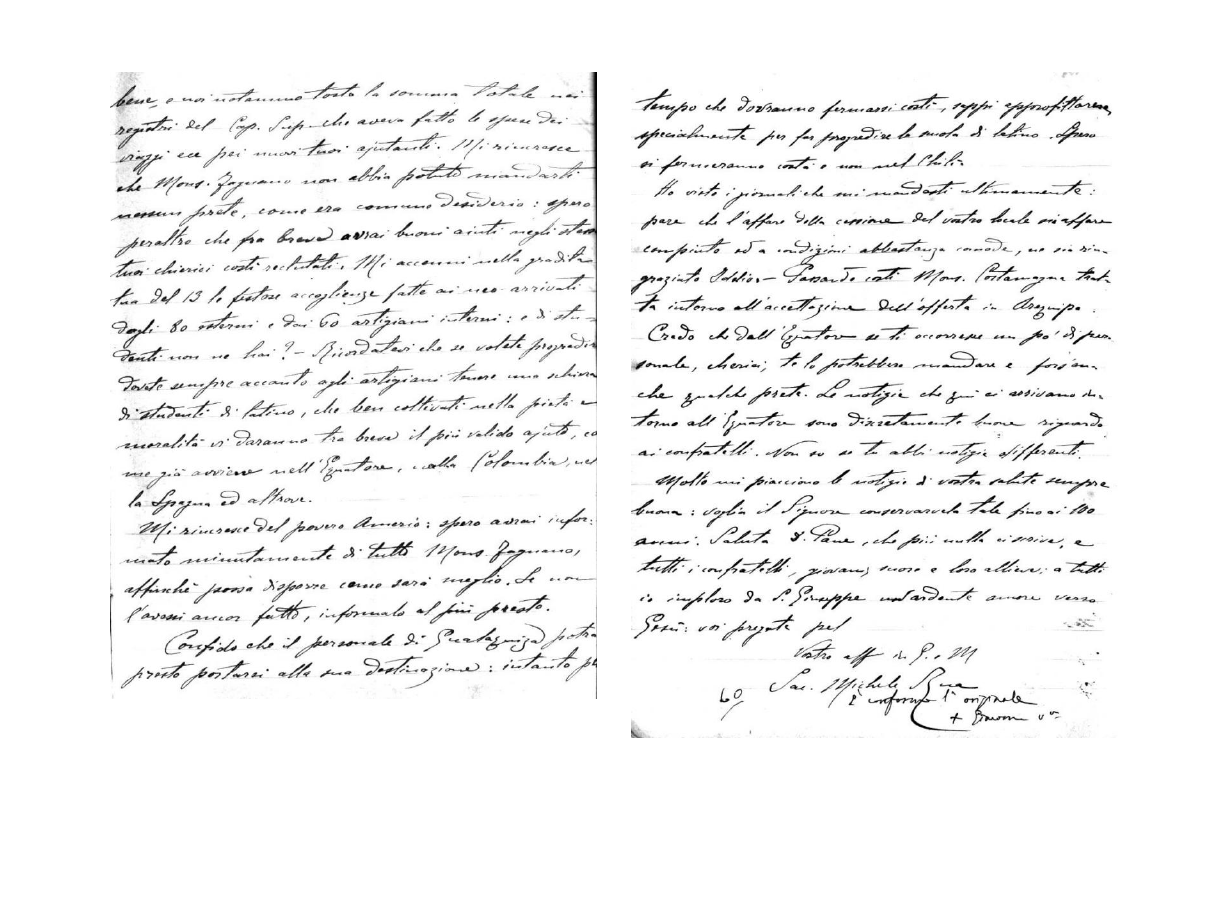 bene, e noi notammo tosto la somma totale nei
registri del Cap. Sup. che aveva fatto le spese dei
viaggi ecc pei nuovi tuoi ajutanti. Mi rincresce
che Mons. Fagnano non abbia potuto mandarti
nessun prete, come era comune desiderio: spero
peraltro che fra breve avrai buoni aiuti negli stessi
tuoi chierici costì reclutati. Mi accenni nella gradita
tua del 13 le festose accoglienze fatte ai neo-arrivati
dagli 80 esterni e dai 60 artigiani interni: e di stu-
denti non ne hai? – Ricordatevi che se volete progredir
dovete sempre accanto agli artigiani tenere una schiera
di studenti di latino, che ben coltivati nella pietà e
moralità vi daranno tra breve il più valido ajuto, co
me già avviene nell'Equatore, nella Colombia, nel
la Spagna ed altrove.
Mi rincresce del povero Amerio: spero avrai infor-
mato minutamente di tutto Mons. Fagnano,
affinchè possa disporre come sarà meglio. Se non
l'avessi ancor fatto, informalo al più presto.
Confido che il personale di Gualaquiza potrà
presto portarsi alla sua destinazione: intanto pel
tempo che dovranno fermarsi costì, sappi approfittarene
specialmente per far progredire la scuola di latino. Spero
si fermeranno costà e non nel Chilì.
Ho visto i giornali che mi mandasti ultimamente:
pare che l'affare della cessione del vostro locale sia affare
compiuto ed a condizioni abbastanza comode, ne sia rin-
graziato Iddio. – Passando costì Mons. Costamagna trat-
ta intorno all'accettazione dell'offerta in Arequipa.
Credo che dall'Equatore se ti occorresse un po' di per-
sonale, chierici, te lo potrebbero mandare e fors'an-
che qualche prete. Le notizie che qui ci arrivano in-
torno all'Equatore sono discretamente buone riguardo
ai confratelli. Non so se tu abbi notizie differenti.
Molto mi piacciono le notizie di vostra salute sempre
buona: voglia il Signore conservarvela tale fino ai 100
anni. Saluta D. Pane, che più nulla ci scrive, e
tutti i confratelli, giovani, suore e loro allieve: a tutti
io imploro da S. Giuseppe un'ardente amore verso
Gesù: voi pregate pel
Vostro aff in G. e M
Sac. Michele Rua
60 È conforme l'originale
+